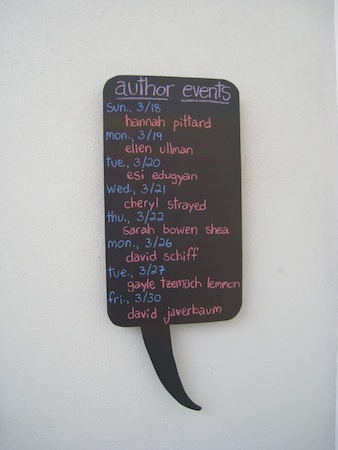 author events
sun., 3/18
hannah pittard
mon., 3/19
ellen ullman
tue., 3/20
esi edugyan
wed., 3/21
cheryl strayed
thu., 3/22
sarah bowen shea
mon., 3/26
david schiff
tue., 3/27
gayle tzemach lemmon
fri., 3/30
david javerbaum